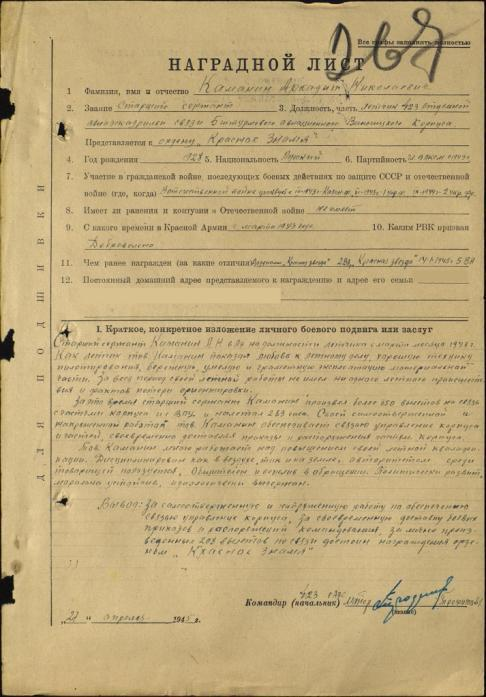 Все графы заполнять полностью
267
НАГРАДНОЙ ЛИСТ
1 Фамилия, имя и отчество Каманин Аркадий Николаевич
2. Звание Старший сержант 3. Должность, часть летчик 423 отдельной
авиаэскадрильи связи 5 штурмового авиационного Винницкого Корпуса
Представляется к ордену „Красное Знамя"
4 Год рождения 1928 5. Национальность Русский 6. Партийность чл. ВЛКСМ 1943г
7. Участие в гражданской войне, последующих боевых действиях по защите СССР и отечественной
войне (где, когда) Отечественной войне
8. Имеет ли ранения и контузии в Отечественной войне не имеет
9. С какого времени в Красной Армии с марта 1943 года 10. Каким РВК призван
Добровольно
11. Чем ранее награжден (за какие отличия) Орденом „Красная звезда" „Красная звезда"
12. Постоянный домашний адрес представляемого к награждению и адрес его семьи
ДЛЯ ПОДШИВКИ
I. Краткое, конкретное изложение личного боевого подвига или заслуг
Старший сержант Каманин А Н в на должности летчика с марта месяца 1943 г.
Как летчик тов. Каманин показал любовь к летному делу, хорошую технику
пилотирования, бережную, умелую и грамотную эксплоатацию материальной
части. За весь период своей летной работы не имел ни одного летного происшеств
ия и фактов потери ориентировки.
За это время старший сержант Каманин произвел более 650 вылетов на связь
с частями корпуса и и налетал 283 часа. Своей самоотверженной и
напряженной работой тов. Каманин обеспечивает связью управление корпуса
и частей, своевременно доставляя приказы и распоряжения корпуса.
Тов. Каманин много работает над повышением своей летной квалифи
кации. Дисциплинирован как в воздухе, так и на земле, авторитетом среди
товарищей пользуется. Общителен и вежлив в обращении. Политически развит,
морально устойчив, идеологически выдержан.
Вывод: За самоотверженную и напряженную работу по обеспечению
связью управления корпуса, за своевременную доставку боевых
приказов и распоряжений командования, за лично произ-
веденных вылетов по связи достоин награждения орде-
ном „Красное Знамя"
423
Командир (начальник) майор
(звание)
„27" апреля 1945 г.